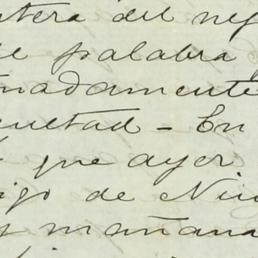 ntera del neg
palabra
madamente
cultad - En
que ayer
igo de Nic
y mañana